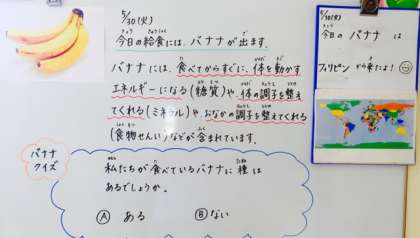 5/30(火)
今日の給食には、バナナが出ます。
バナナには、食べてからすぐに、体を動かす
エネルギーになる(糖質)や、体の調子を整え
てくれる(ミネラル)や、おなかの調子を整えてくれる
(食物せんい)などが含まれています。
バナナ
クイズ
私たちが食べているバナナに種は
あるでしょうか。
Ⓐ ある Ⓑ ない
5/30(火)
今日の バナナ は
フィリピン から来たよ!